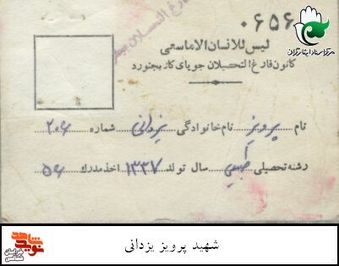 ۰۶۵۶
لیس للانسان الاماسعی
کانون فارغ التحصیلان جویای کار بجنورد
نام پرویز نام خانوادگی یزدانی شماره ۲۰۶
رشته تحصیلی طبیعی سال تولد ۱۳۳۷ اخذ مدرک ۵۶
شهید پرویز یزدانی